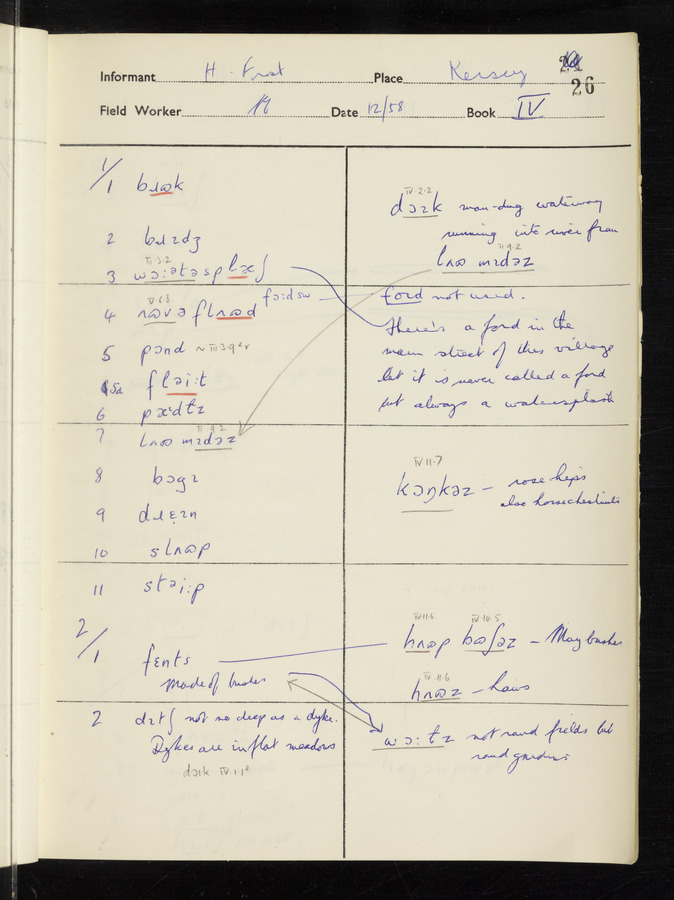 26
Informant H. Frost Place Kersey
Field Worker Date 12/58 Book IV
1/
1 bɹɷk
2 bɹɪdʒ
IV·3·2
3 wɔ:ətəsplæʃ
IV·2·2
dɔɪk man-dug waterway
running into river from
II 9·2
lʌɷ mɪdəz
4 flʌɷd fɔ:d sw
5 pɔnd
5a fləi:t
6
7 lʌɷ mɪdəz
II 9·2
8 bɔgɪ
9 dɹɛɪn
10 slʌɷp
11 stəi:p
ford not used.
There's a ford in the
main street of this village
but it is never called a ford
but always a watersplash
IV·11·7
kɔŋkəz – rose hips
also horsechestnuts
2/
1 fɛnts
Made of bushes
2 dɪtʃ not so deep as a dyke.
Dykes are in flat meadows
dɔɪk IV·1·1²
IV·11·6 IV·10·5
hʌɷp bɷʃəz – May bushes
IV·11·6
hʌɷz – haws
wɔ:tz not round fields but
round gardens